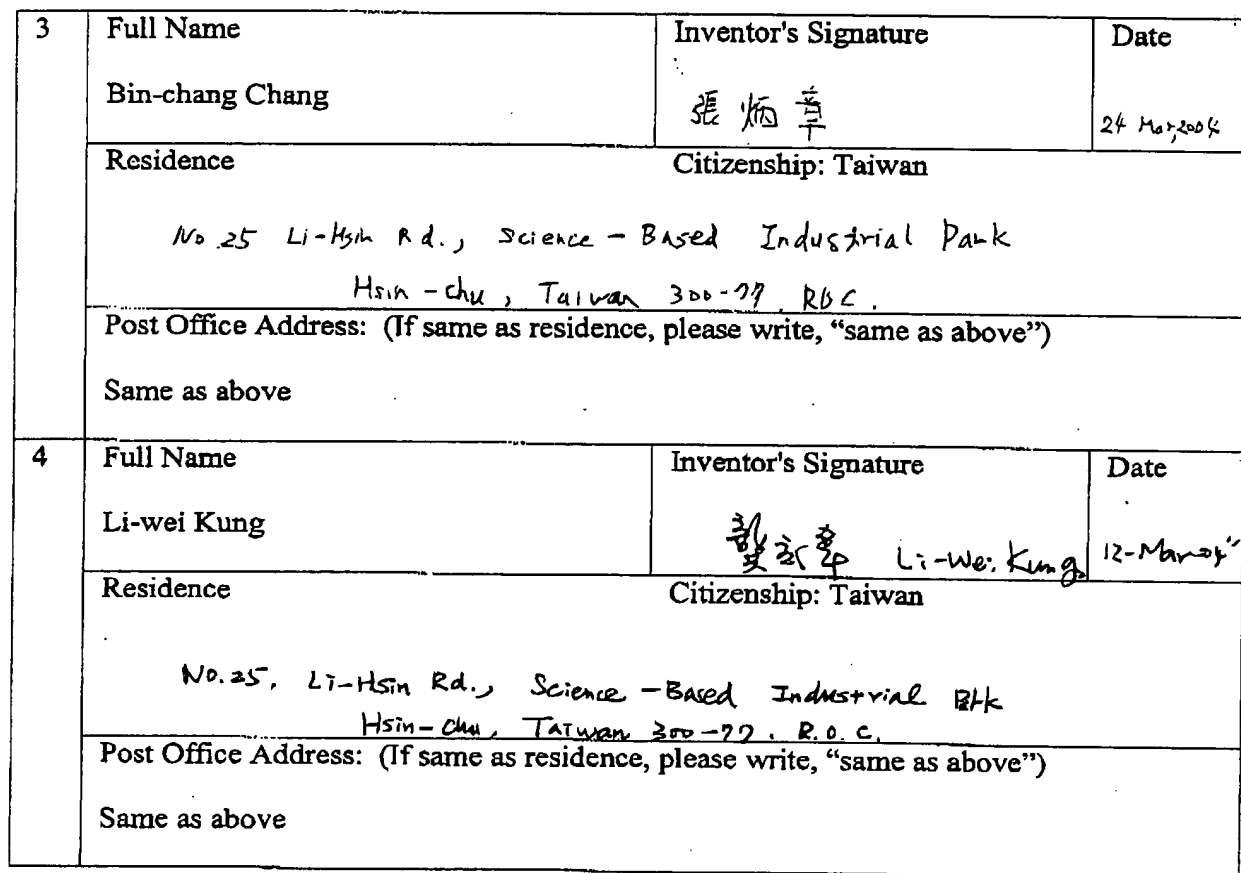 3 Full Name Inventor's Signature Date
Bin-chang Chang 張炳章 24 Mar, 2004
Residence Citizenship: Taiwan
No 25 Li-Hsin Rd., Science-Based Industrial Park
Hsin-chu, Taiwan 300-77 ROC.
Post Office Address: (If same as residence, please write, “same as above”)
Same as above
4 Full Name Inventor's Signature Date
Li-wei Kung Li-Wei Kung 12-Mar-04"
Residence Citizenship: Taiwan
No.25, Li-Hsin Rd., Science-Based Industrial
Hsin-Chu, Taiwan 300-77. R.O.C.
Post Office Address: (If same as residence, please write, “same as above”)
Same as above